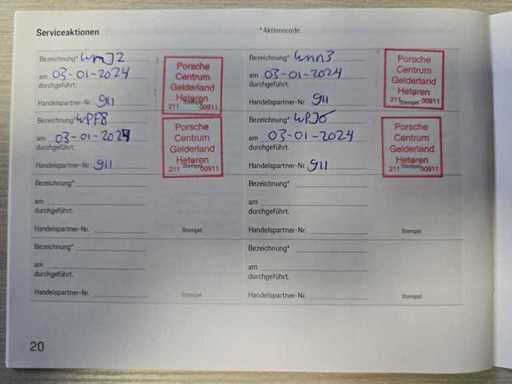 Serviceaktionen
* Aktionscode
Bezeichnung* WMJ2
am 03-01-2024
durchgeführt.
Handelspartner-Nr. 911
Stempel
Porsche
Centrum
Gelderland
Heteren
211 00911
Bezeichnung* WNN3
am 03-01-2024
durchgeführt.
Handelspartner-Nr. 911
Stempel
Porsche
Centrum
Gelderland
Heteren
211 00911
Bezeichnung* WPF8
am 03-01-2024
durchgeführt.
Handelspartner-Nr. 911
Stempel
Porsche
Centrum
Gelderland
Heteren
211 00911
Bezeichnung*
am 03-01-2024
durchgeführt.
Handelspartner-Nr. 911
Stempel
Porsche
Centrum
Gelderland
Heteren
211 00911
Bezeichnung*
am
durchgeführt.
Handelspartner-Nr.
Stempel
Bezeichnung*
am
durchgeführt.
Handelspartner-Nr.
Stempel
Bezeichnung*
am
durchgeführt.
Handelspartner-Nr.
Stempel
Bezeichnung*
am
durchgeführt.
Handelspartner-Nr.
Stempel
20